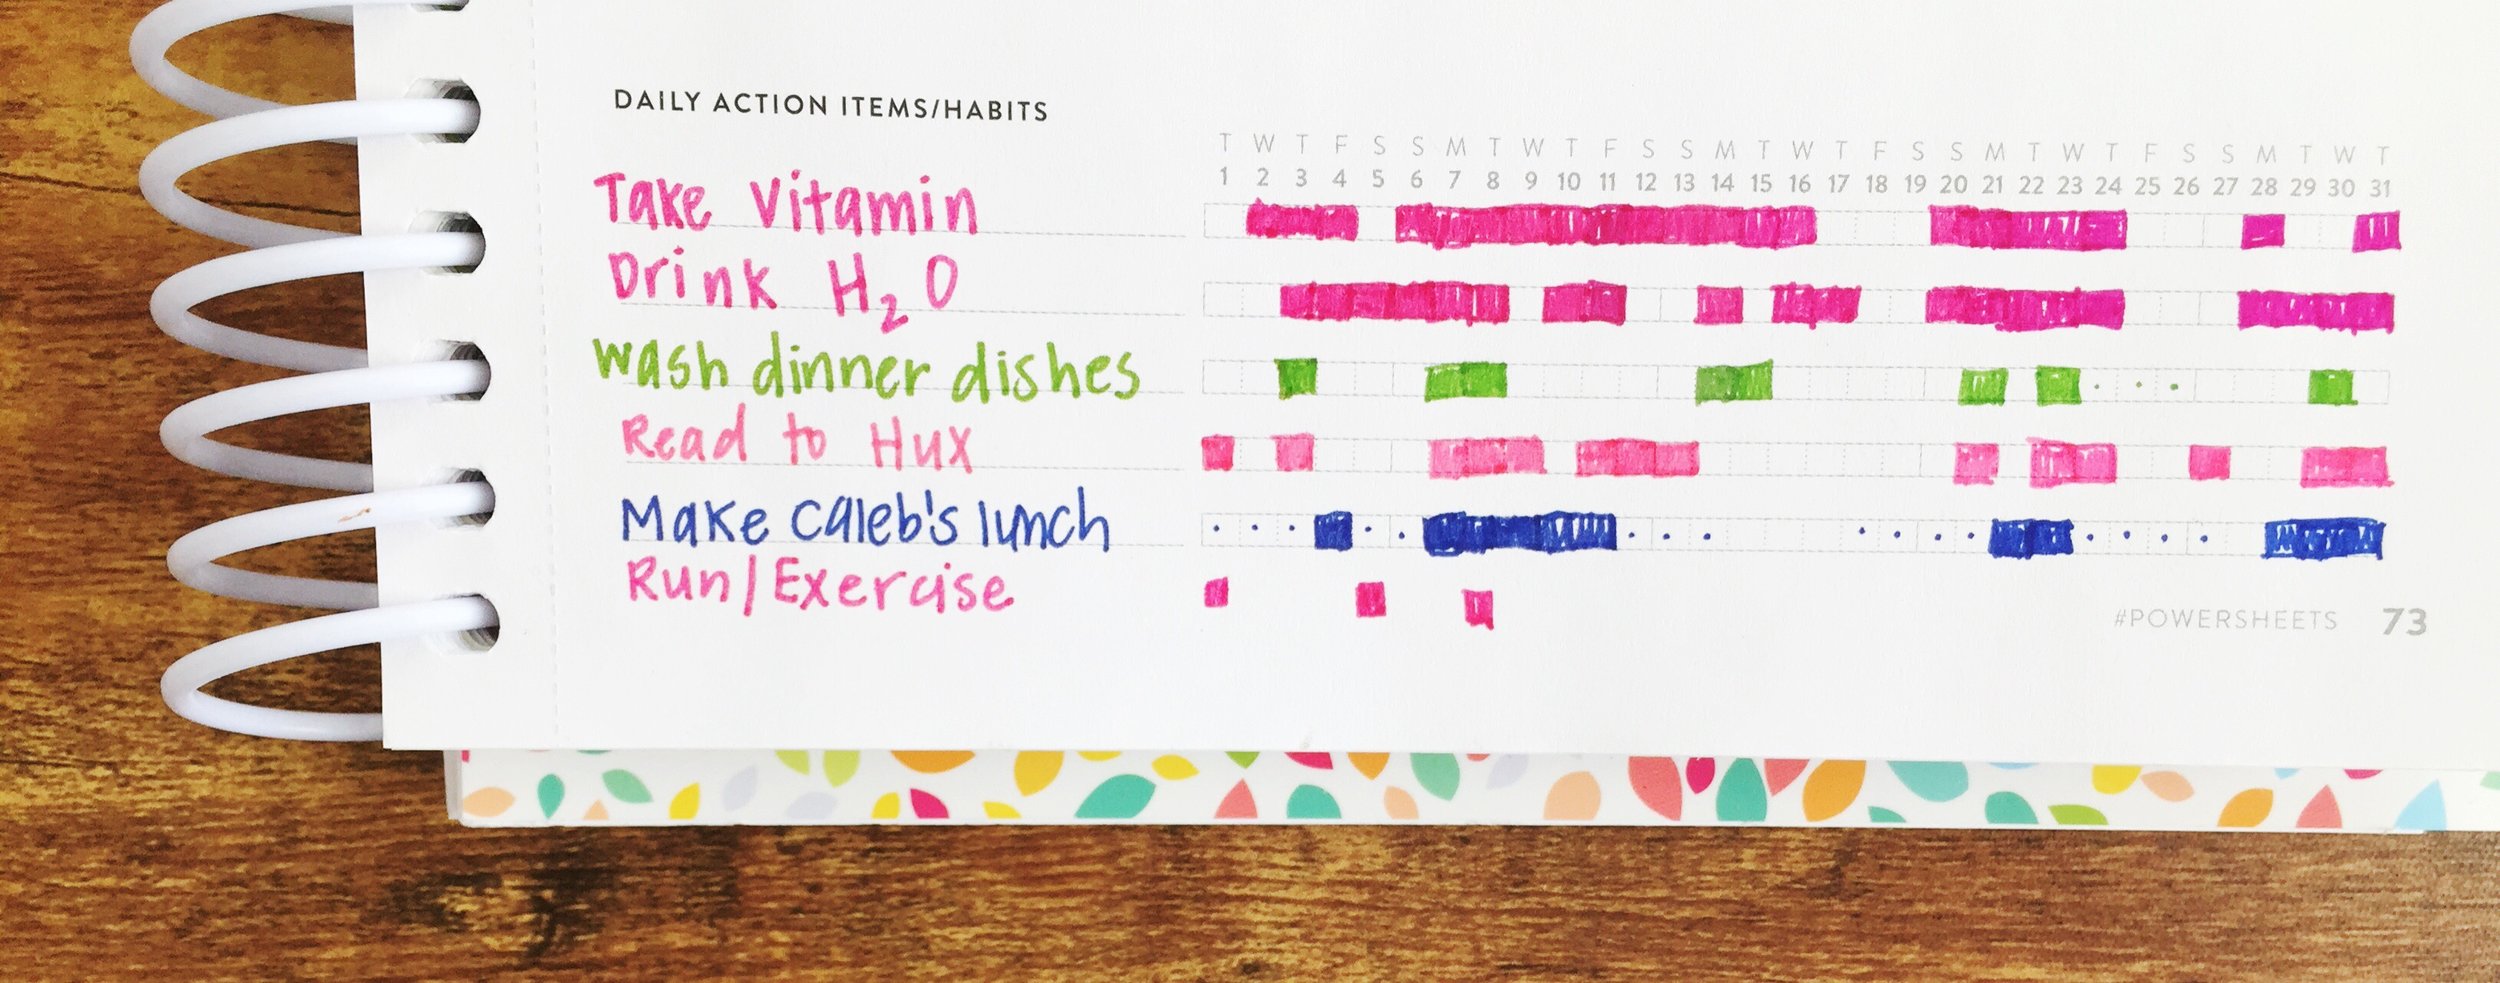 DAILY ACTION ITEMS/HABITS
T W T F S S M T W T F S S M T W T F S S M T W T F S S M T W T
1 2 3 4 5 6 7 8 9 10 11 12 13 14 15 16 17 18 19 20 21 22 23 24 25 26 27 28 29 30 31
Take Vitamin
Drink H₂O
Wash dinner dishes
Read to Hux
Make Caleb's lunch
Run/Exercise
#POWERSHEETS 73